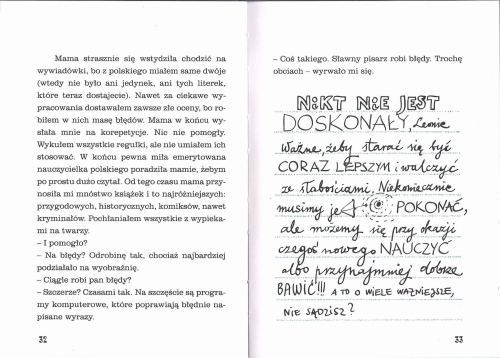 Mama strasznie się wstydziła chodzić na
wywiadówki, bo z polskiego miałem same dwóje
(wtedy nie było ani jedynek, ani tych literek,
które teraz dostajecie). Nawet za ciekawe wy-
pracowania dostawałem zawsze złe oceny, bo ro-
biłem w nich masę błędów. Mama w końcu wy-
słała mnie na korepetycje. Nic nie pomogły.
Wykułem wszystkie regułki, ale nie umiałem ich
stosować. W końcu pewna miła emerytowana
nauczycielka polskiego poradziła mamie, żebym
po prostu dużo czytał. Od tego czasu mama przy-
nosiła mi mnóstwo książek i to najróżniejszych:
przygodowych, historycznych, komiksów, nawet
kryminałów. Pochłaniałem wszystkie z wypieka-
mi na twarzy.
– I pomogło?
– Na błędy? Odrobinę tak, chociaż najbardziej
podziałało na wyobraźnię.
– Ciągle robi pan błędy?
– Szczerze? Czasami tak. Na szczęście są progra-
my komputerowe, które poprawiają błędnie na-
pisane wyrazy.
32
– Coś takiego. Sławny pisarz robi błędy. Trochę
obciach – wyrwało mi się.
NIKT NIE JEST
DOSKONAŁY, Leonie
Ważne, żeby starać się być
CORAZ LEPSZYM i walczyć
ze słabościami. Niekoniecznie
musimy je POKONAĆ,
ale możemy się przy okazji
czegoś nowego NAUCZYĆ
albo przynajmniej dobrze
BAWIĆ!!! A TO O WIELE WAŻNIEJSZE,
NIE SĄDZISZ?
33